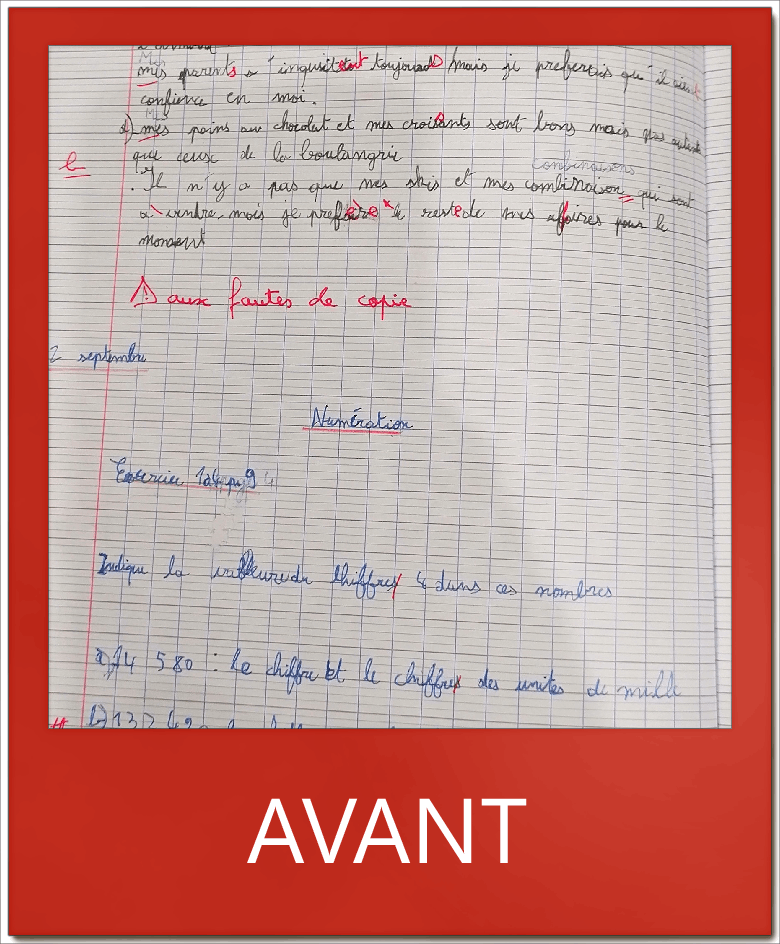 mes parents s'inquiètent toujours mais je preferais qu'il aient
confience en moi.
Mes
2) mes pains au chocolat et mes croisants sont bons mais pas autant
que ceux de la boulangrie
Combinaisons
. Il n'y a pas que mes skis et mes combinaison qui sont
à vendre, mais je prefère le reste de mes affaires pour le
moment
⚠ aux fautes de copie
2 septembre
Numération
Exercice 9
Indique la chiffre 4 dans ces nombres
a) 14 580 : Le chiffre et le chiffre des unités de mille
b)
AVANT